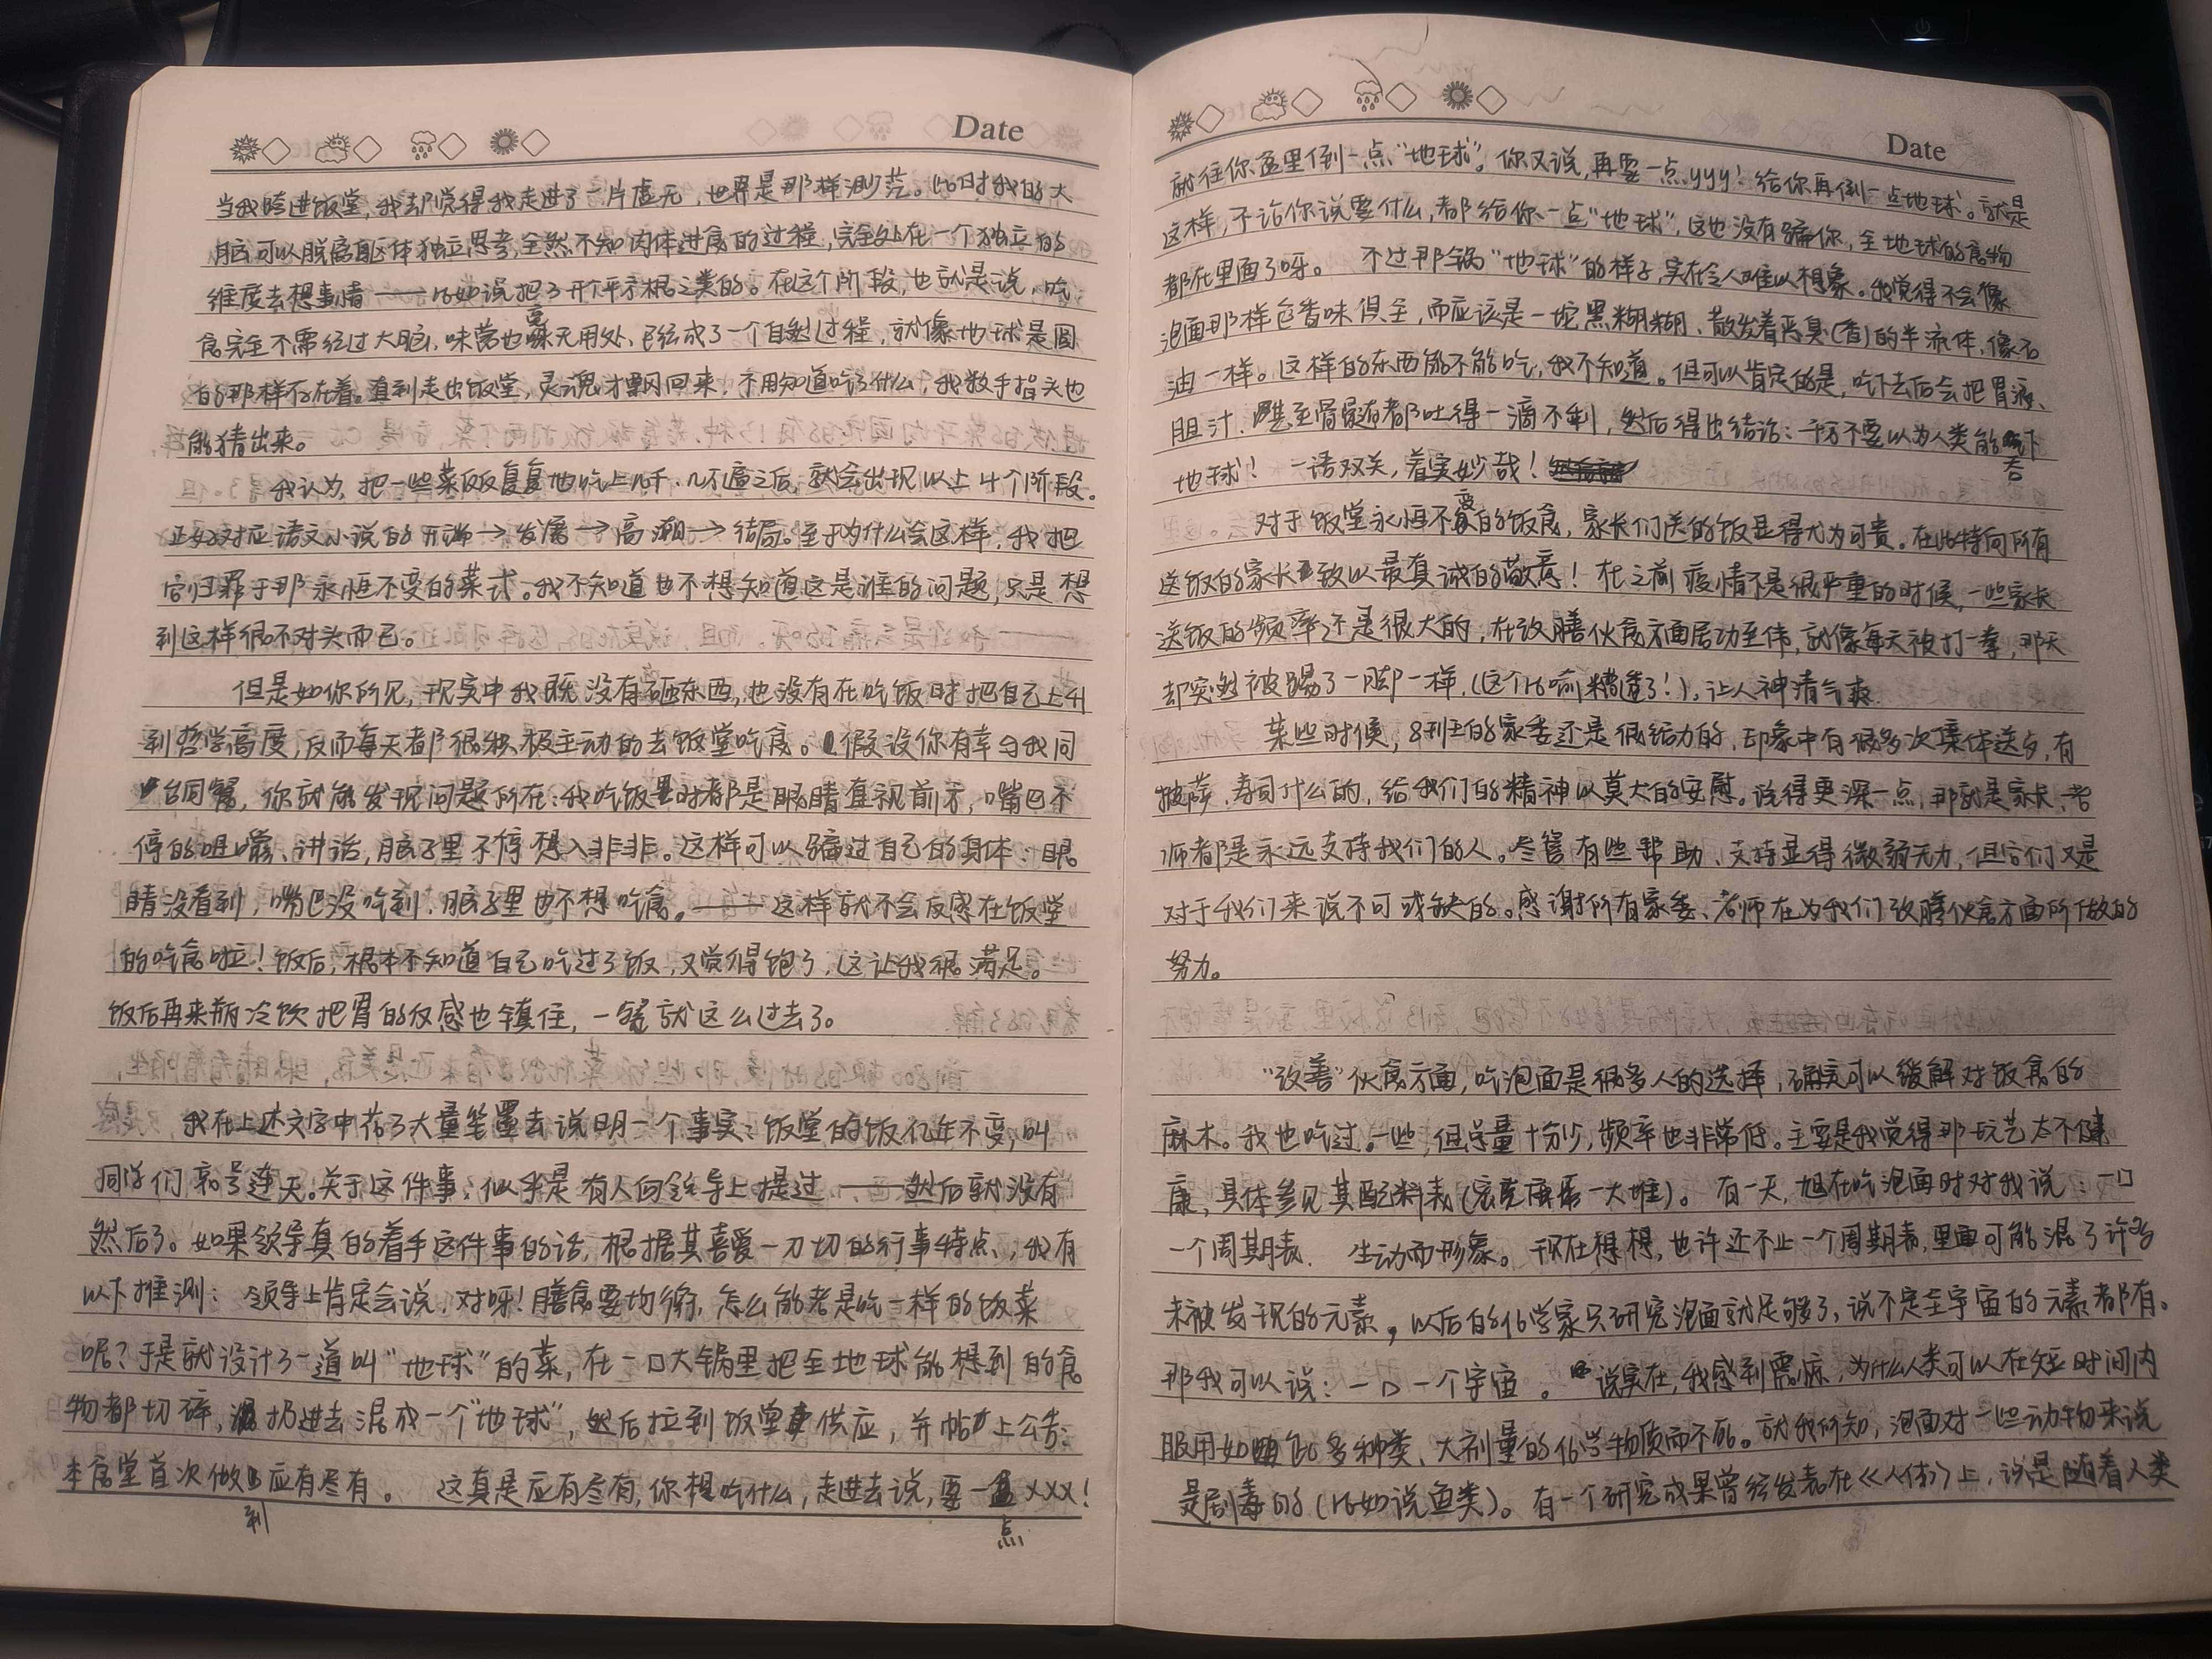 Date
当我踏进饭堂，我却觉得我走进了一片虚无，世界是那样渺茫。此时我的大
脑可以脱离躯体独立思考，全然不知肉体进食的过程，完全处在一个独立的
维度去想事情——比如说把3开个平方根之类的。在这个阶段，也就是说，吃
食完全不需经过大脑，味蕾也毫无用处，已经成了一个自然过程，就像地球是圆
的那样存在着。直到走出饭堂，灵魂才飘回来，不用知道吃了什么，我数手指头也
能猜出来。
我认为，把一些菜反反复复地吃上几千、几万遍之后，就会出现以上4个阶段。
正好对应语文小说的开端→发展→高潮→结局。至于为什么会这样，我把
它归罪于那永恒不变的菜式。我不知道也不想知道这是谁的问题，只是想
到这样很不对头而已。
但是如你所见，现实中我既没有砸东西，也没有在吃饭时把自己上升
到哲学高度，反而每天都很积极主动的去饭堂吃食。假设你有幸与我同
台同餐，你就能发现问题所在：我吃饭时都是眼睛直视前方，嘴巴不
停的咀嚼、讲话，脑子里不停想入非非。这样可以骗过自己的身体：眼
睛没看到，嘴巴没吃到，脑子里也不想吃食。——这样就不会反感在饭堂
的吃食啦！饭后，根本不知道自己吃过了饭，又觉得饱了，这让我很满足。
饭后再来瓶冷饮把胃的反感也镇住，一餐就这么过去了。
我在上述文字中花了大量笔墨去说明一个事实：饭堂的饭亿年不变，叫
同学们哀号连天。关于这件事，似乎是有人向领导上提过——然后就没有
然后了。如果领导真的着手这件事的话，根据其喜爱一刀切的行事特点，我有
以下推测：领导上肯定会说，对呀！膳食要均衡，怎么能老是吃一样的饭菜
呢？于是就设计了一道叫“地球”的菜，在一口大锅里把全地球能想到的食
物都切碎，扔进去混成一个“地球”，然后拉到饭堂供应，并帖上公告：
本食堂首次做到应有尽有。 这真是应有尽有，你想吃什么，走进去说，要一点XXX！
Date
就往你盔里倒一点“地球”。你又说，再要一点yyy！给你再倒一点地球。就是
这样，不论你说要什么，都给你一点“地球”，这也没有骗你，全地球的食物
都在里面了呀。 不过那锅“地球”的样子，实在令人难以想象。我觉得不会像
泡面那样色香味俱全，而应该是一坨黑糊糊、散发着恶臭(香)的半流体，像石
油一样。这样的东西能不能吃，我不知道。但可以肯定的是，吃下去后会把胃液、
胆汁、甚至骨髓都吐得一滴不剩，然后得出结论：千万不要以为人类能吞下
地球！ 一语双关，着实妙哉！
对于饭堂永恒不变的饭食，家长们送的饭显得尤为可贵。在此特向所有
送饭的家长致以最真诚的敬意！在之前疫情不是很严重的时候，一些家长
送饭的频率还是很大的，在改膳伙食方面居功至伟，就像每天被打一拳，那天
却突然被踢了一脚一样，(这个比喻糟透了！)，让人神清气爽。
某些时候，8班的家委还是很给力的，印象中有很多次集体送与，有
披萨、寿司什么的，给我们的精神以莫大的安慰。说得更深一点，那就是家长、老
师都是永远支持我们的人。尽管有些帮助、支持显得微弱无力，但它们又是
对于我们来说不可或缺的。感谢所有家委、老师在为我们改膳伙食方面所做的
努力。
“改善”伙食方面，吃泡面是很多人的选择，确实可以缓解对饭食的
麻木。我也吃过一些，但总量十分少，频率也非常低。主要是我觉得那玩艺太不健
康，具体参见其配料表(密密麻麻一大堆)。 有一天，旭在吃泡面时对我说：一口
一个周期表。 生动而形象。 现在想想，也许还不止一个周期表，里面可能混了许多
未被发现的元素，以后的化学家只研究泡面就足够了，说不定全宇宙的元素都有。
那我可以说：一口一个宇宙。 说实在，我感到震惊，为什么人类可以在短时间内
服用如此多种类、大剂量的化学物质而不死。就我所知，泡面对一些动物来说
是剧毒的(比如说鱼类)。有一个研究成果曾经发表在《人体》上，说是随着人类